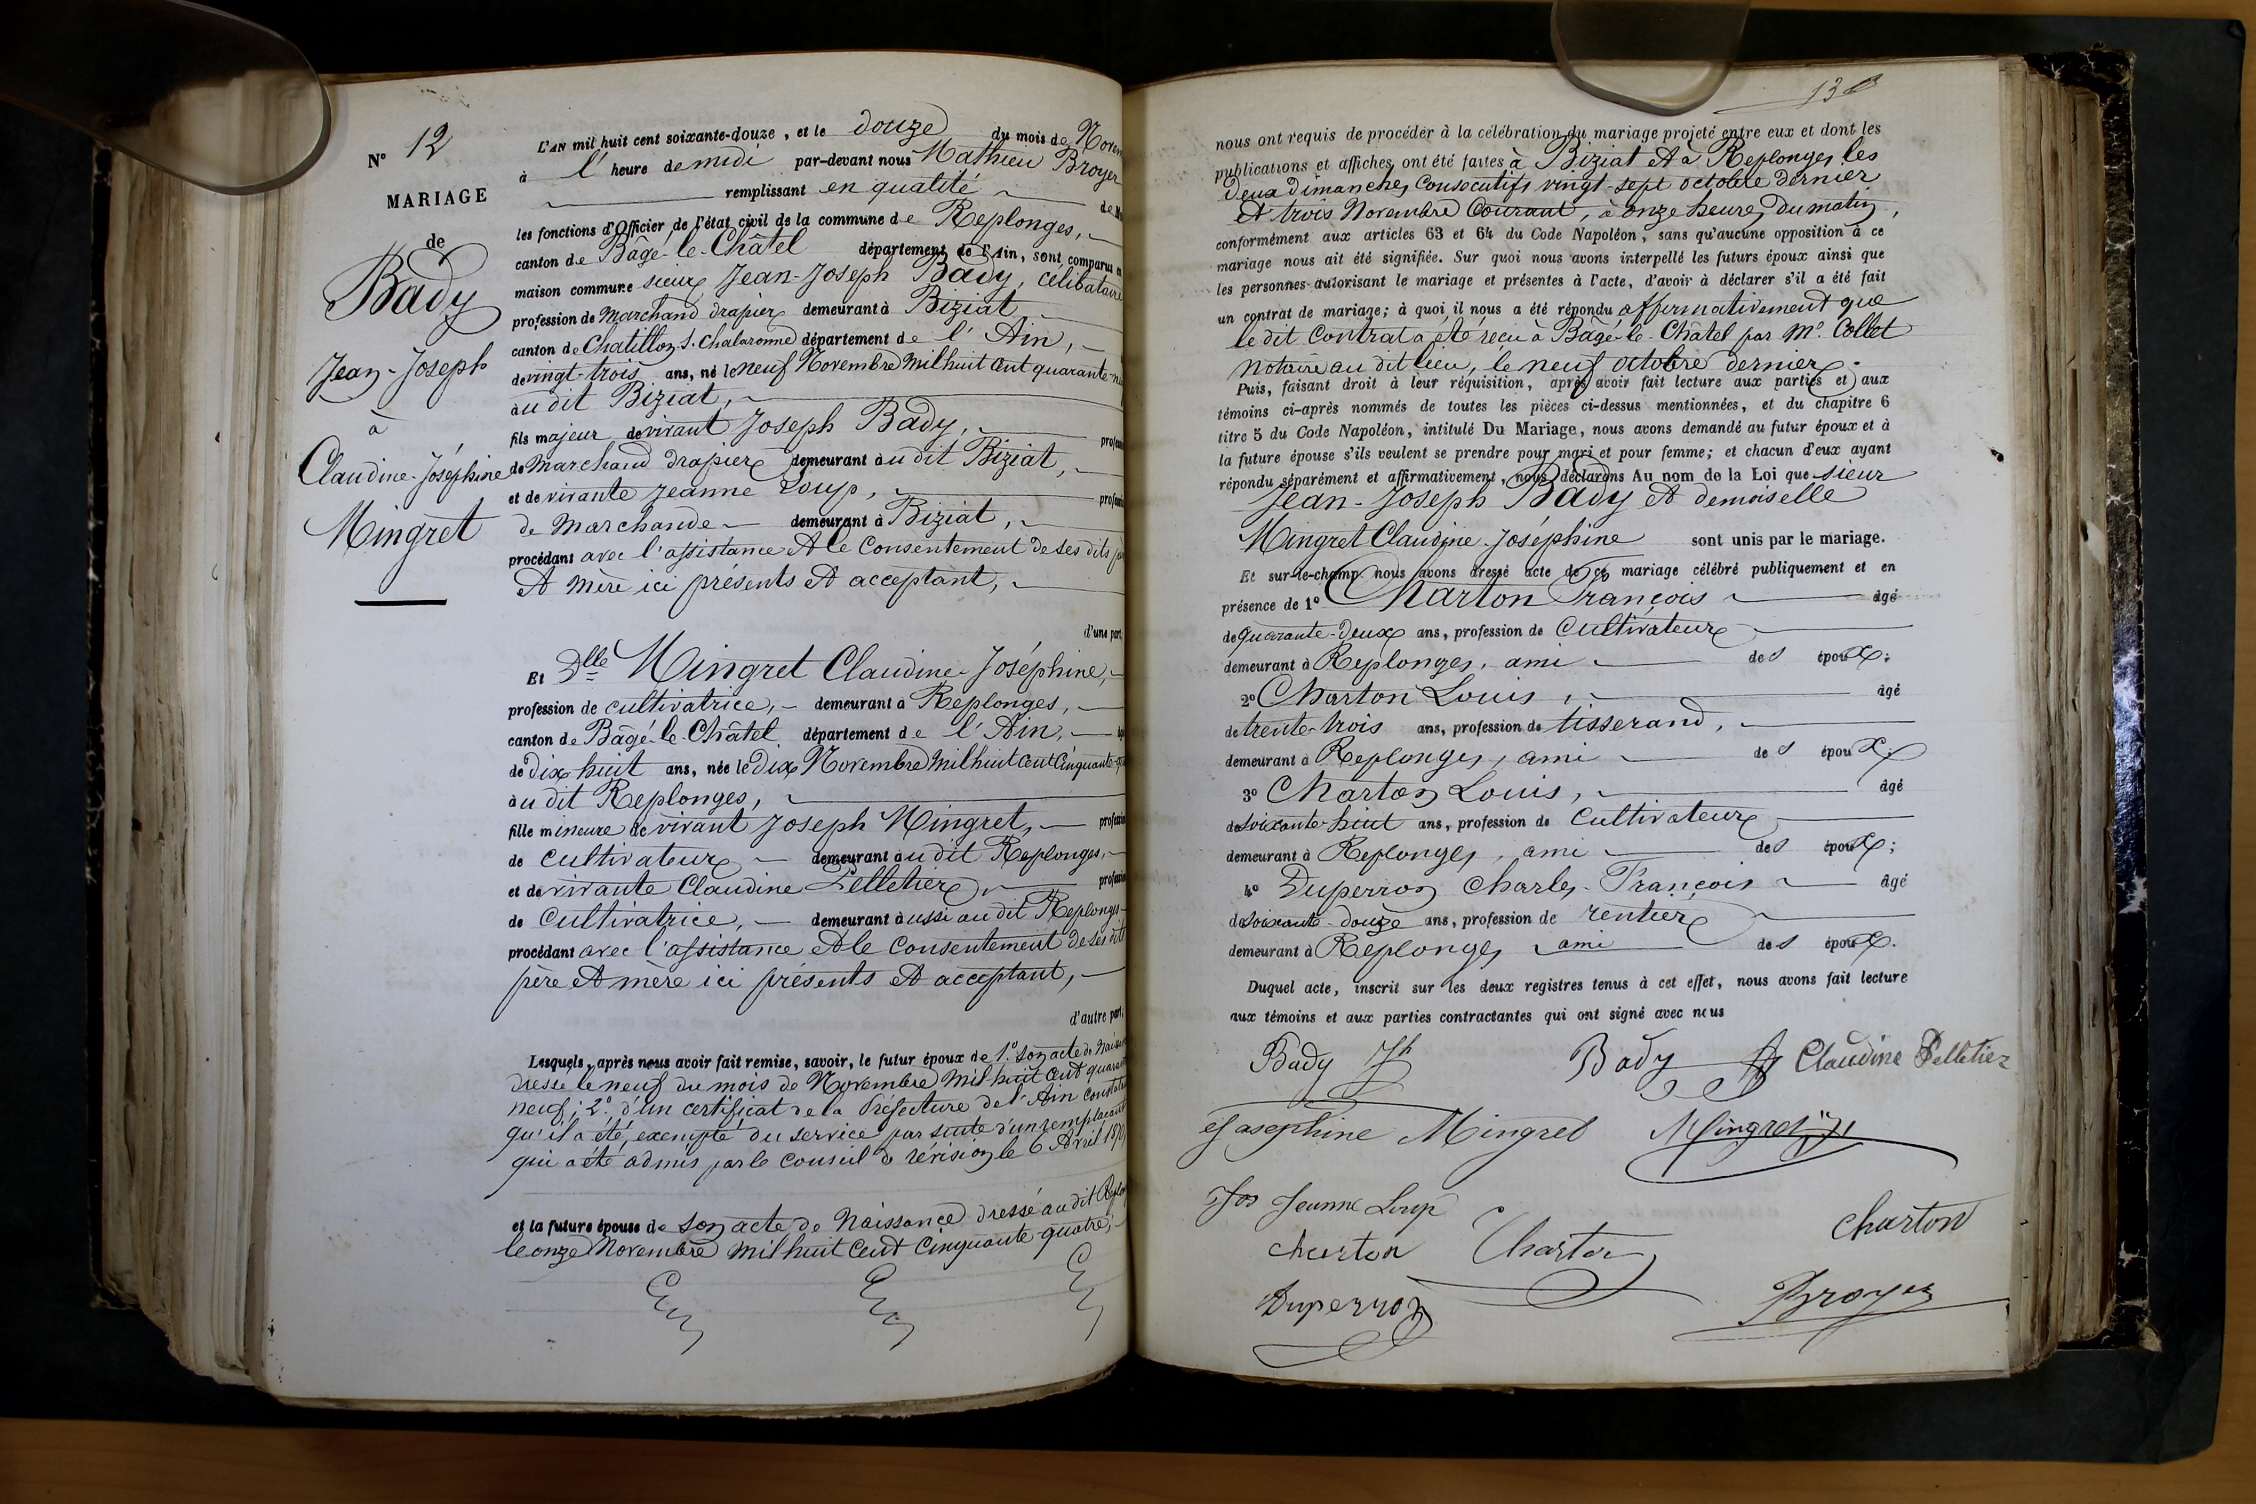 N° 12
MARIAGE
de
Bady
Jean-Joseph
à
Claudine-Joséphine
Mingret
L'AN mil huit cent soixante-douze, et le douze du mois de Novem
à l'heure de midi par-devant nous Mathieu Broyer
remplissant en qualité de M
les fonctions d'Officier de l'état civil de la commune de Replonges,
canton de Bâgé-le-Châtel département de l'Ain, sont comparus en
maison commune sieur Jean-Joseph Bady, célibataire
profession de Marchand drapier demeurant à Biziat
canton de Chatillon s. Chalaronne département de l'Ain,
de vingt-trois ans, né le neuf Novembre mil huit cent quarante-neu
au dit Biziat,
fils majeur de vivant Joseph Bady, profession
de Marchand drapier demeurant au dit Biziat,
et de vivante Jeanne Loup, profession
de Marchande demeurant à Biziat,
procédant avec l'assistance et le consentement de ses dits pè
et mère ici présents et acceptant,
d'une part,
Et Dlle Mingret Claudine-Joséphine,
profession de cultivatrice, demeurant à Replonges,
canton de Bâgé-le-Châtel département de l'Ain,
de dix huit ans, née le dix Novembre mil huit cent cinquante-q
au dit Replonges,
fille mineure de vivant Joseph Mingret, profession
de cultivateur demeurant au dit Replonges,
et de vivante Claudine Pelletier, profession
de cultivatrice, demeurant aussi au dit Replonges
procédant avec l'assistance et le consentement de ses dits
père et mère ici présents et acceptant,
d'autre part;
Lesquels, après nous avoir fait remise, savoir, le futur époux de 1° son acte de naiss
dressé le neuf du mois de Novembre mil huit cent quarante
neuf; 2° d'un certificat de la Préfecture de l'Ain constatant
qu'il a été exempté du service par suite d'un remplaçant
qui a été admis par le conseil de révision le 6 Avril 1870
et la future épouse de son acte de Naissance dressé au dit Replon
le onze Novembre mil huit cent cinquante quatre;
nous ont requis de procéder à la célébration du mariage projeté entre eux et dont les
publications et affiches ont été faites à Biziat et à Replonges les
deux dimanches consécutifs vingt-sept octobre dernier
et trois Novembre courant, à onze heures du matin,
conformément aux articles 63 et 64 du Code Napoléon, sans qu'aucune opposition à ce
mariage nous ait été signifiée. Sur quoi nous avons interpellé les futurs époux ainsi que
les personnes autorisant le mariage et présentes à l'acte, d'avoir à déclarer s'il a été fait
un contrat de mariage; à quoi il nous a été répondu affirmativement que
le dit contrat a été reçu à Bâgé-le-Châtel par Me Collet
notaire au dit lieu, le neuf octobre dernier.
Puis, faisant droit à leur réquisition, après avoir fait lecture aux parties et aux
témoins ci-après nommés de toutes les pièces ci-dessus mentionnées, et du chapitre 6
titre 5 du Code Napoléon, intitulé Du Mariage, nous avons demandé au futur époux et à
la future épouse s'ils veulent se prendre pour mari et pour femme; et chacun d'eux ayant
répondu séparément et affirmativement, nous déclarons Au nom de la Loi que sieur
Jean-Joseph Bady et demoiselle
Mingret Claudine-Joséphine sont unis par le mariage.
Et sur-le-champ nous avons dressé acte de ce mariage célébré publiquement et en
présence de 1° Charton François âgé
de quarante-deux ans, profession de cultivateur
demeurant à Replonges, ami des époux;
2° Charton Louis, âgé
de trente-trois ans, profession de tisserand,
demeurant à Replonges, ami des époux;
3° Charton Louis, âgé
de soixante-huit ans, profession de cultivateur
demeurant à Replonges, ami des époux;
4° Duperron Charles-François âgé
de soixante-douze ans, profession de rentier
demeurant à Replonges ami des époux.
Duquel acte, inscrit sur les deux registres tenus à cet effet, nous avons fait lecture
aux témoins et aux parties contractantes qui ont signé avec nous
Bady Jh Bady Claudine Pelletier
Josephine Mingret Mingret
Jeanne Loup
charton Charton charton
Duperron Broyer